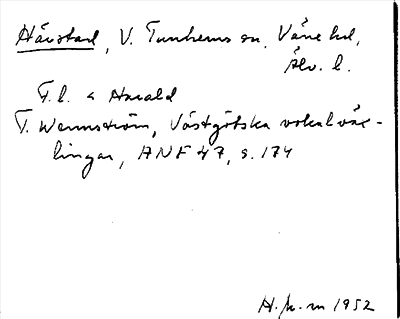 Hävstad, V. Tunhems sn, Väne hd,
Älv. l.
F.l. < Harald
T. Wennström, Västgötska vokalväx-
lingar, ANF 47, s. 174
H. 1952